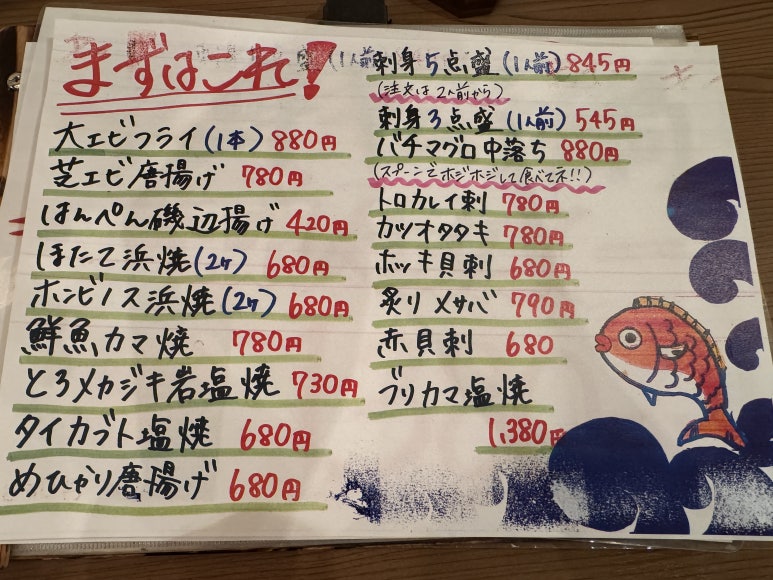 まずはこれ!
大エビフライ(1本) 880円
芝エビ唐揚げ 780円
はんぺん磯辺揚げ 420円
ほたて浜焼(2ヶ) 680円
ホンビノス浜焼(2ヶ) 680円
鮮魚カマ焼 780円
とろメカジキ岩塩焼 730円
タイカブト塩焼 680円
めひかり唐揚げ 680円
刺身5点盛(1人前) 845円
(注文は2人前から)
刺身3点盛(1人前) 545円
バチマグロ中落ち 880円
(スプーンでホジホジして食べてネ!!)
トロカレイ刺 780円
カツオタタキ 780円
ホッキ貝刺 680円
炙りメサバ 790円
赤貝刺 680
ブリカマ塩焼
1,380円